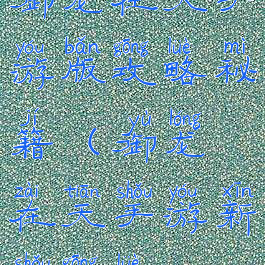 御龙在天手
yóu bǎn gōng lüè mì
游版攻略秘
jí yù lóng
籍（御龙
zài tiān shǒu yóu xīn
在天手游新
shǒu gōng lüè